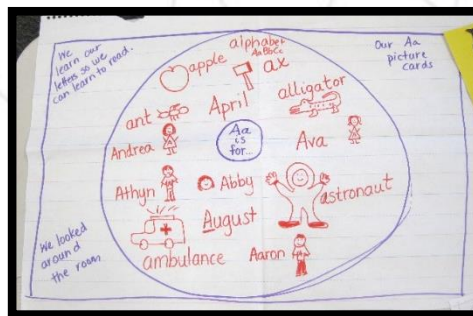 We
learn our
letters so we
can learn to read.
Our Aa
picture
cards
alphabet
AaBbCc
apple
ax
April
alligator
ant
Andrea
Aa
is
for...
Ava
Athyn
Abby
astronaut
August
ambulance
Aaron
We looked
around
the room